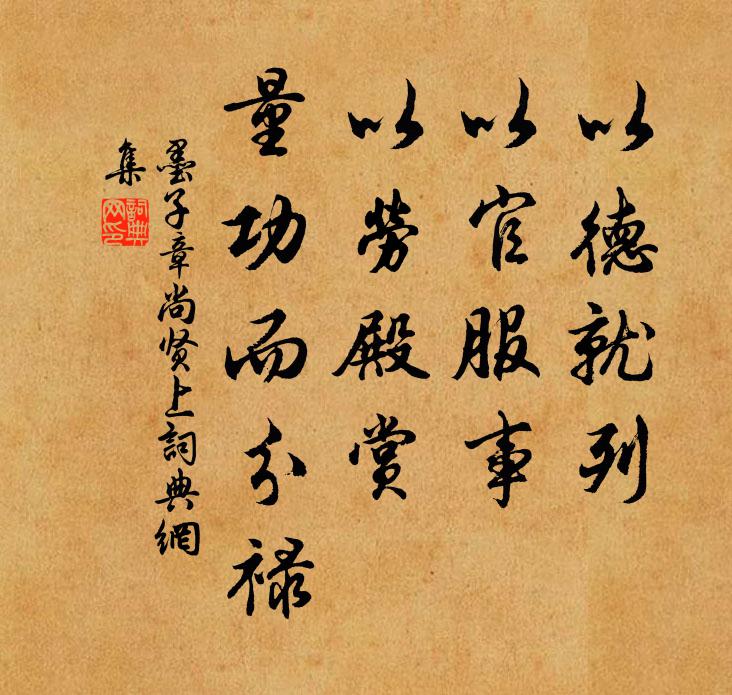 以德就列
以官服事
以劳殿赏
量功而分禄
墨子章尚贤上詞典網
集
詞典网印